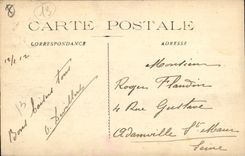 CARTE POSTALE
CORRESPONDANCE
ADRESSE
13
12/1/12
Bons baisers à tous
Monsieur
Roger Flandin
4 Rue Gustave
Adamville St Maur
Seine